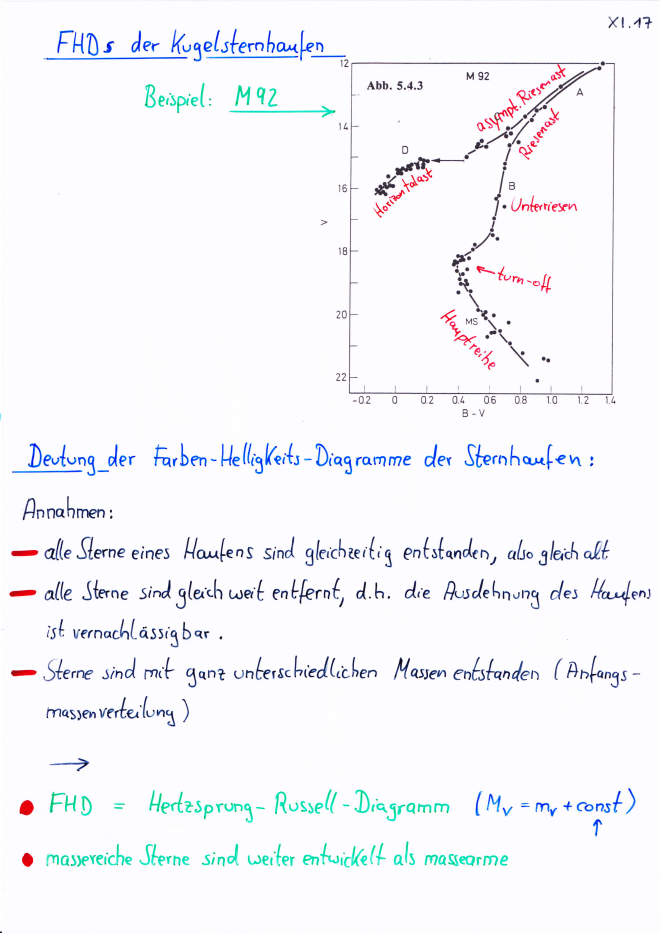 XI.17
FHDs der Kugelsternhaufen
Beispiel: M92
Abb. 5.4.3
M 92
asympt. Riesenast
A
Riesenast
D
Horizontalast
B
Unterriesen
turn-off
MS
Hauptreihe
12
14
16
18
20
22
V
-0.2 0 0.2 0.4 0.6 0.8 1.0 1.2 1.4
B - V
Deutung der Farben-Helligkeits-Diagramme der Sternhaufen:
Annahmen:
— alle Sterne eines Haufens sind gleichzeitig entstanden, also gleich alt
— alle Sterne sind gleich weit entfernt, d.h. die Ausdehnung des Haufens
ist vernachlässigbar.
— Sterne sind mit ganz unterschiedlichen Massen entstanden (Anfangs-
massenverteilung)
→
• FHD = Hertzsprung-Russell-Diagramm (Mv = mv + const)
↑
• massereiche Sterne sind weiter entwickelt als massearme